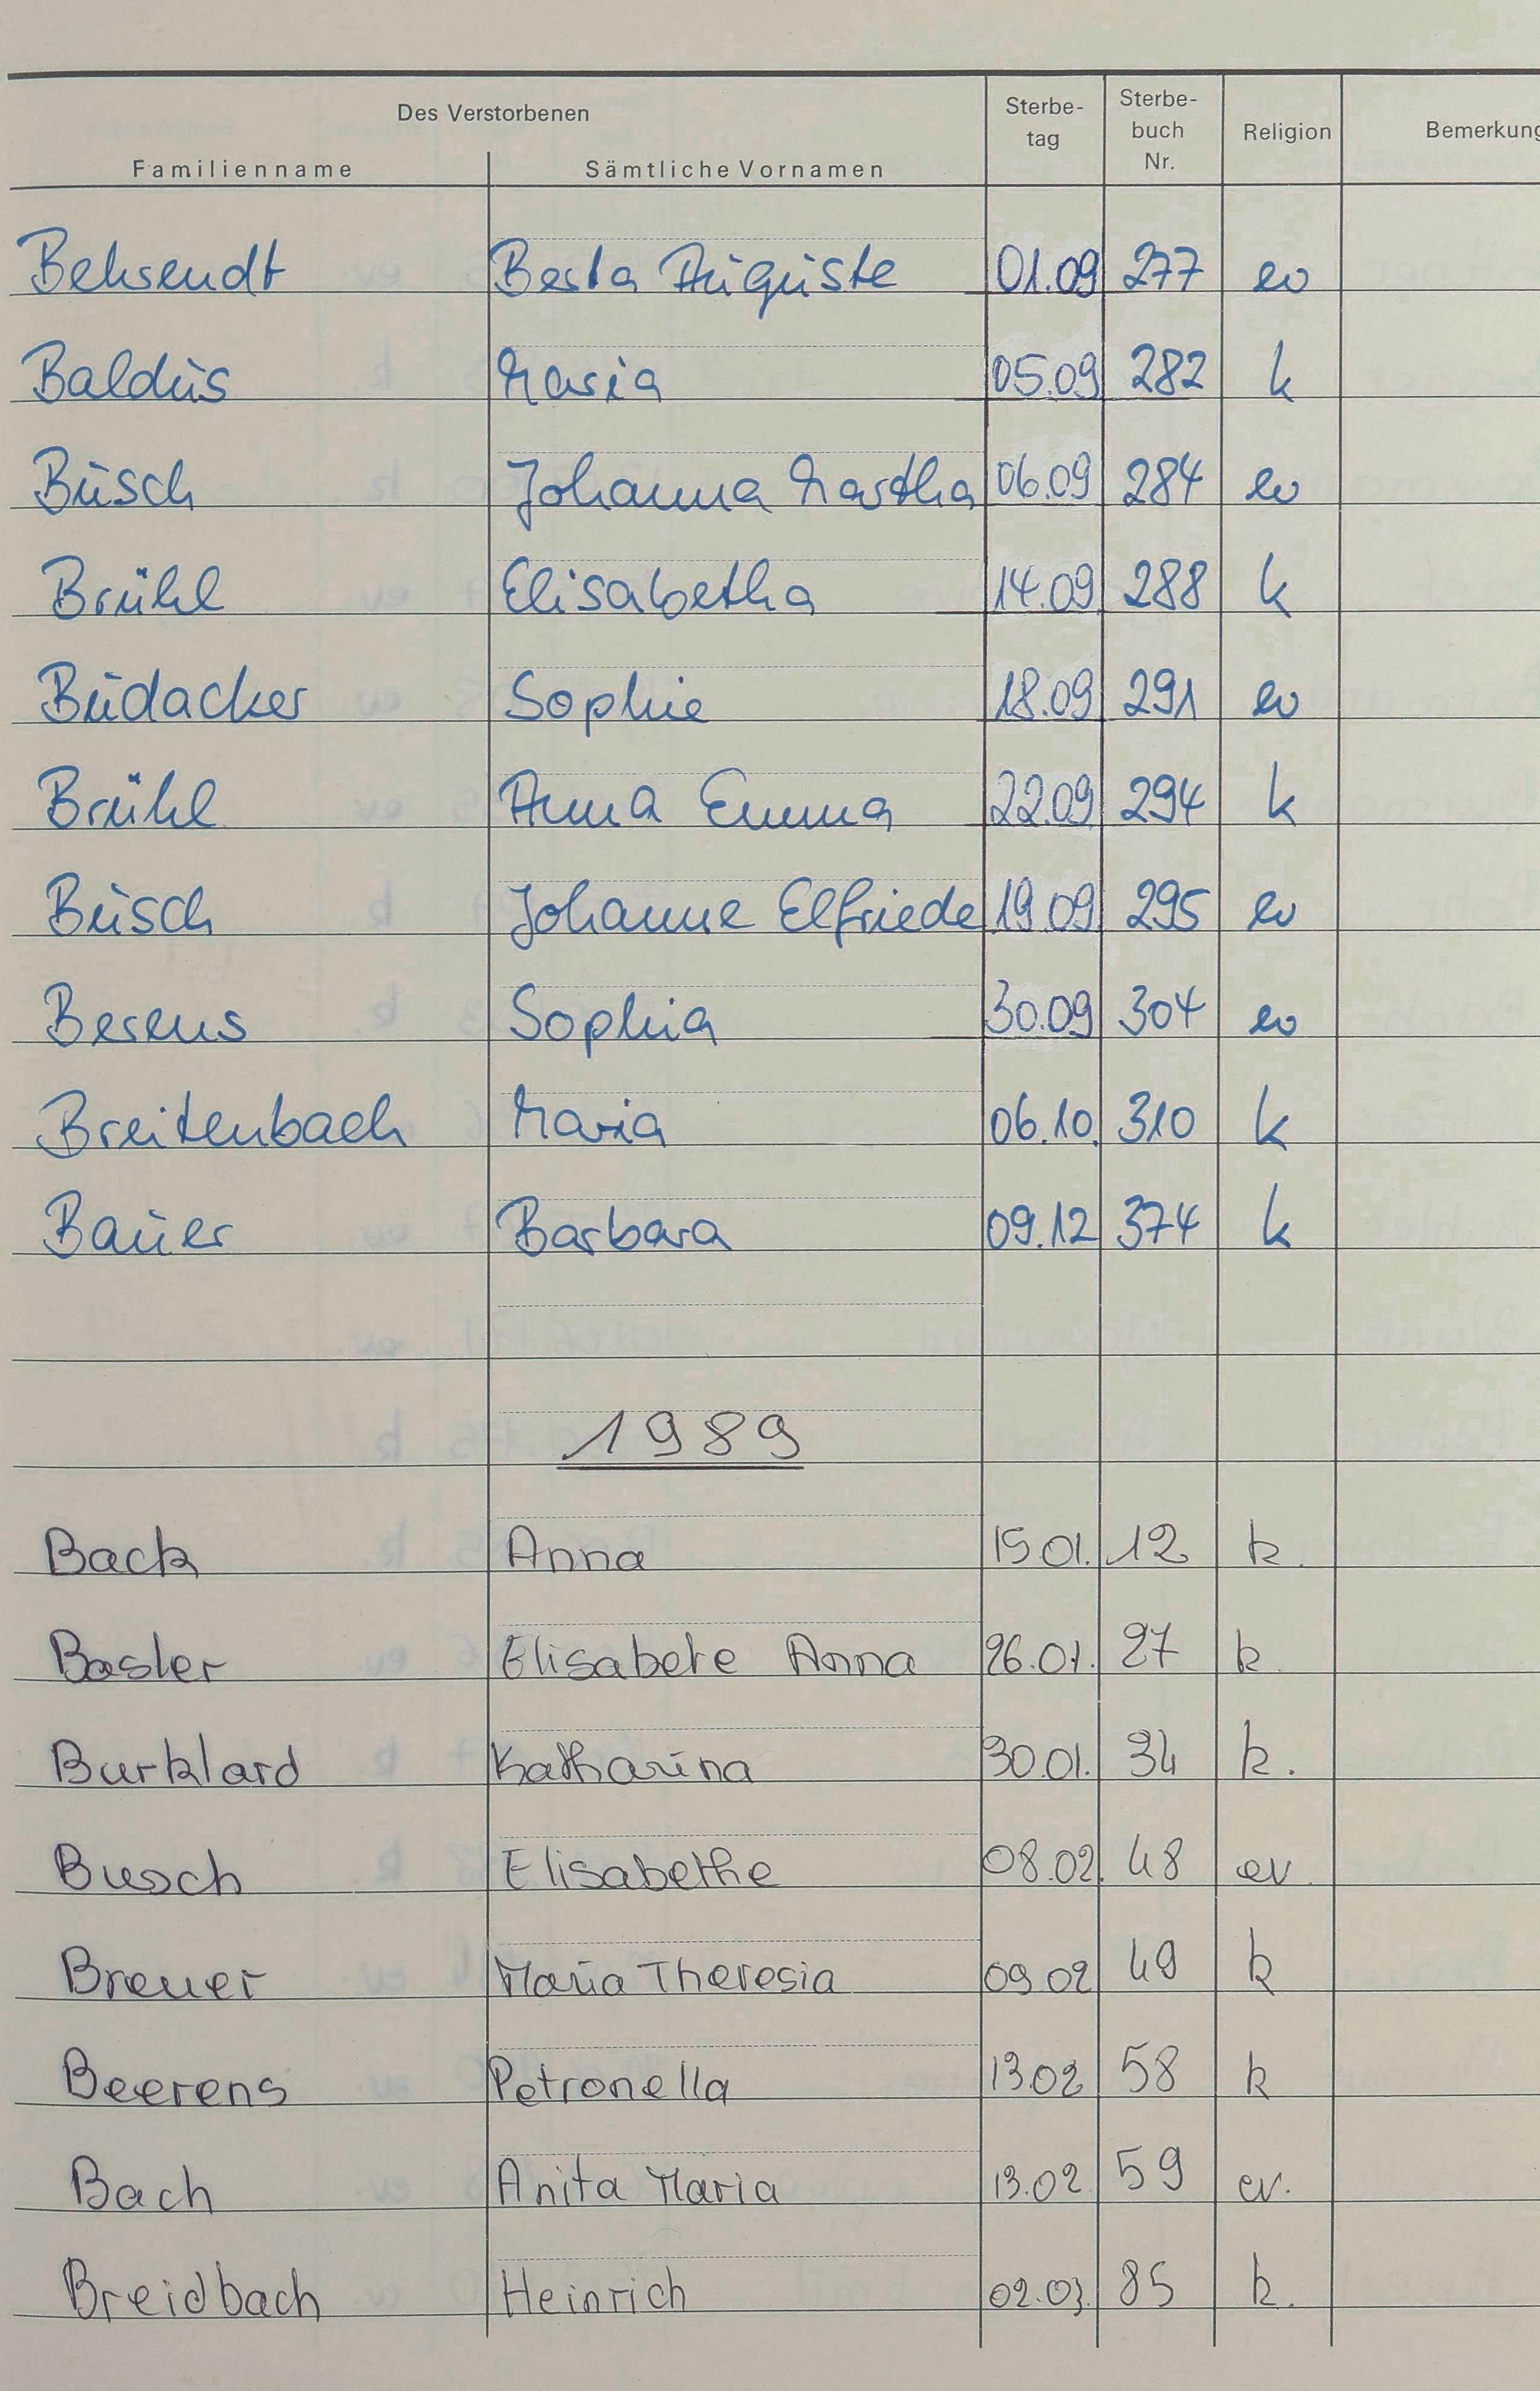 Des Verstorbenen
Familienname Sämtliche Vornamen Sterbe-tag Sterbe-buch Nr. Religion Bemerkung
Behrendt Berta Auguste 01.09 277 ev
Baldus Maria 05.09 282 k
Busch Johanna Martha 06.09 284 ev
Brühl Elisabetha 14.09 288 k
Budacker Sophie 18.09 291 ev
Brühl Anna Emma 22.09 294 k
Busch Johanne Elfriede 19.09 295 ev
Berens Sophia 30.09 304 ev
Breitenbach Maria 06.10. 310 k
Bauer Barbara 09.12 374 k
1989
Back Anna 15.01. 12 k.
Basler Elisabete Anna 26.01. 27 k.
Burklard Katharina 30.01. 34 k.
Busch Elisabethe 08.02. 48 ev.
Breuer Maria Theresia 09.02 49 k
Beerens Petronella 13.02 58 k
Bach Anita Maria 13.02 59 ev.
Breidbach Heinrich 02.03. 85 k.